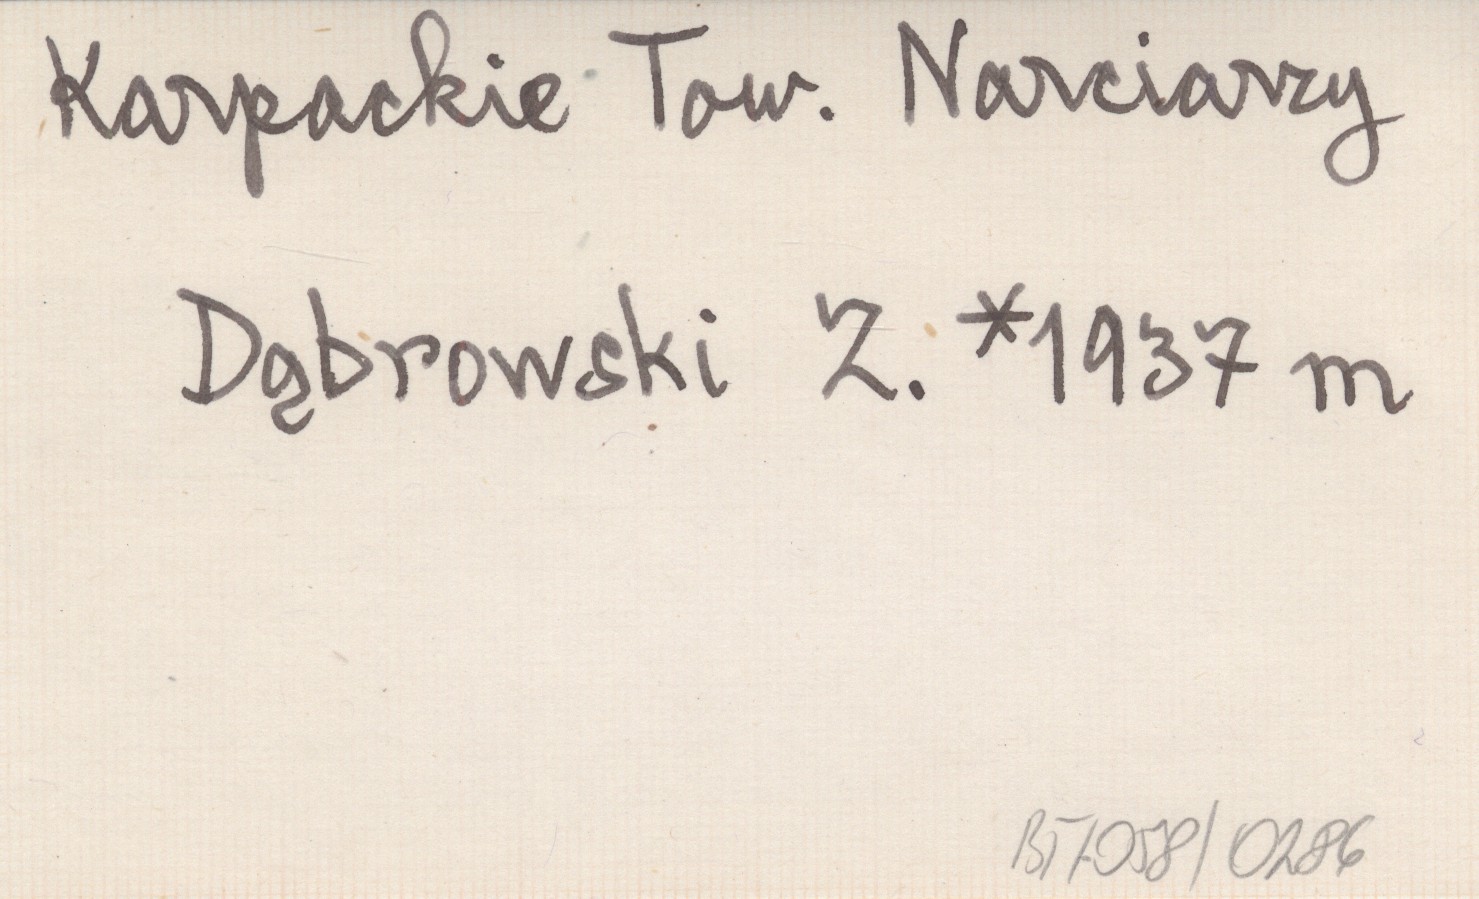 Karpackie Tow. Narciarzy
Dąbrowski Z. *1937 m
BT/058/0286